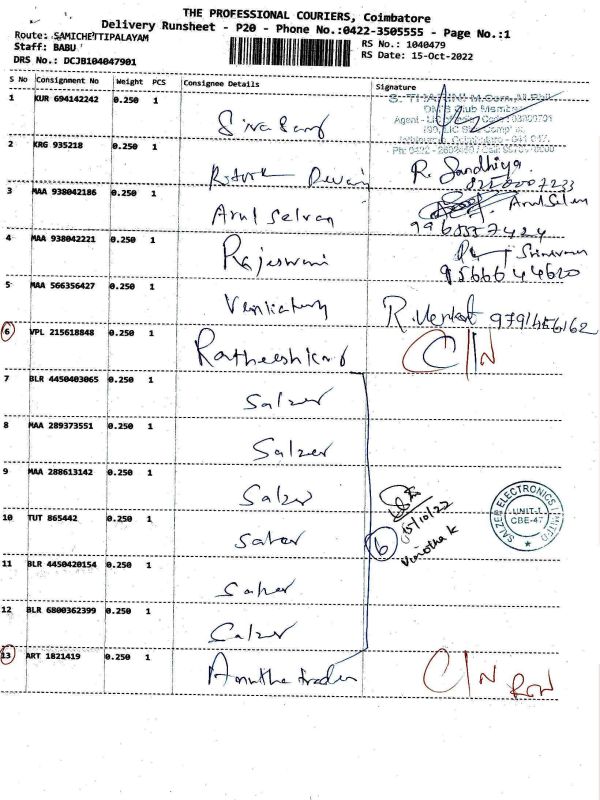 THE PROFESSIONAL COURIERS, Coimbatore
Delivery Runsheet - P20 - Phone No.:0422-3505555 - Page No.:1
Route: SAMICHETTIPALAYAM
Staff: BABU
RS No.: 1040479
DRS No.: DCJB104047901
RS Date: 15-Oct-2022
S No Consignment No Weight PCS Consignee Details Signature
1 KUR 694142242 0.250 1
2 KRG 935218 0.250 1
R. Sandhiya
3 MAA 938042186 0.250 1 Arul Selvan
9965557424
4 MAA 938042221 0.250 1 Rajeswari
9566644620
5 MAA 566356427 0.250 1 R. Venkat 9791456162
6 VPL 215618848 0.250 1 Ratheeshkumar C/N
7 BLR 4450403065 0.250 1 Salzer
8 MAA 289373551 0.250 1 Salzer
9 MAA 288613142 0.250 1 Salzer
15/10/22
Vinotha K
6
SALZER ELECTRONICS LIMITED
UNIT-1
CBE-47
10 TUT 865442 0.250 1 Salzer
11 BLR 4450420154 0.250 1 Salzer
12 BLR 6800362399 0.250 1 Salzer
13 ART 1821419 0.250 1 C/N